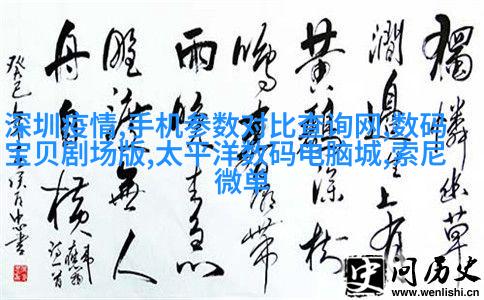 獨憐幽草
澗邊生上有
黄鸝深樹
鳴春潮帶
雨晚来急
野渡無人
舟自横
深圳疫情,手机参数对比查询网,数码
宝贝剧场版,太平洋数码电脑城,索尼
微单
问历史
www.wenlishi.cn